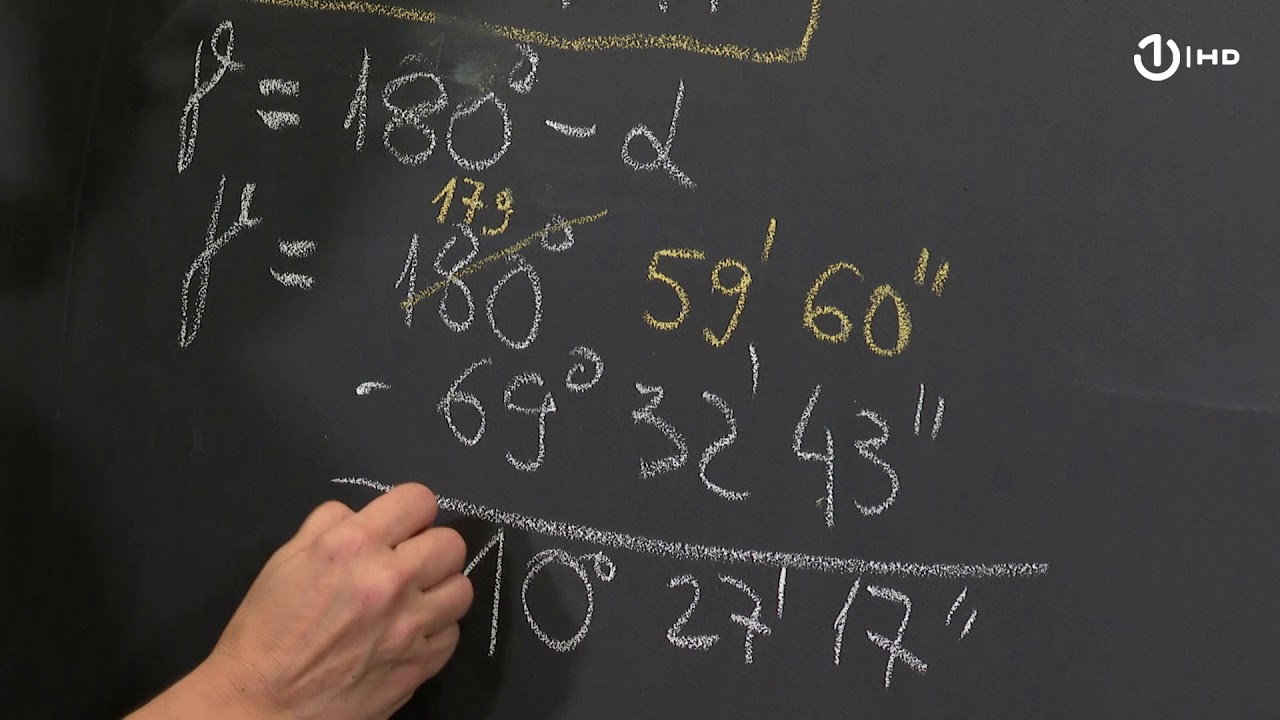 1 HD
γ = 180° - α
179
γ = 180° 59' 60"
- 69° 32' 43"
10° 27' 17"